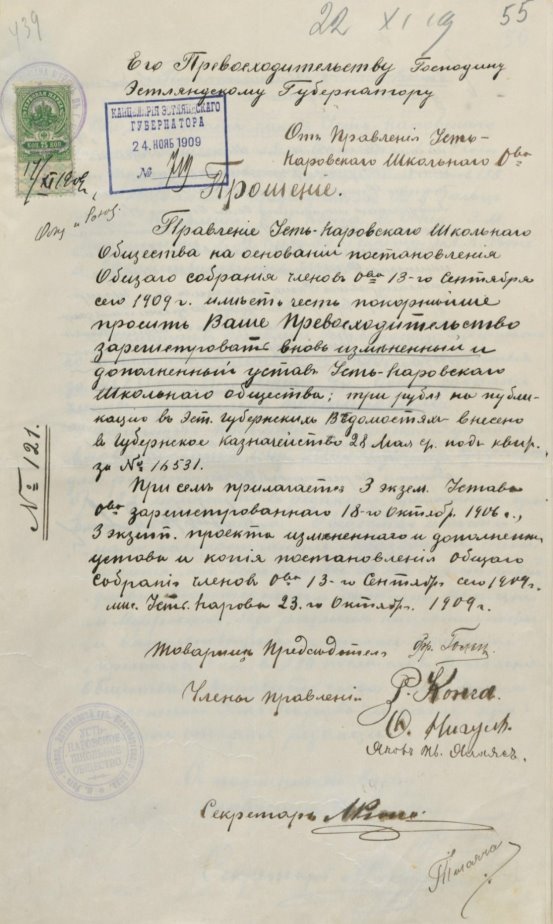 439
22 XI 19
55
Его Превосходительству Господину
Эстляндскому Губернатору
КАНЦЕЛЯРІЯ ЭСТЛЯНДСКАГО
ГУБЕРНАТОРА
24. НОЯБ 1909
№ 719
17/XI 1909 г.
Отъ Правленія Усть-
Наровскаго Школьнаго О-ва
Прошеніе.
Правленіе Усть-Наровскаго Школьнаго
Общества на основаніи постановленія
Общаго собранія членовъ О-ва 13-го Сентября
сего 1909 г. имѣетъ честь покорнѣйше
просить Ваше Превосходительство
зарегистровать вновь измѣненный и
дополненный уставъ Усть-Наровскаго
Школьнаго общества; три рубля на публи-
кацію въ Эст. Губернскихъ Вѣдомостяхъ внесено
въ Губернское Казначейство 28 Мая с.г. подъ квит.
за № 16531.
При семъ прилагается 3 экзем. Устава
О-ва зарегистрованнаго 18-го Октябр. 1906 г.,
3 экзем. проекта измѣненнаго и дополненн.
устава и копія постановленія общаго
собранія членовъ О-ва 13-го Сентябр. сего 1909 г.
мѣс. Усть-Нарова 23-го Октябр. 1909 г.
№ 121.
Товарищъ Предсѣдателя
Члены Правленія
Р. Конга.
УСТЬ-
НАРОВСКОЕ
ШКОЛЬНОЕ
ОБЩЕСТВО
Секретарь